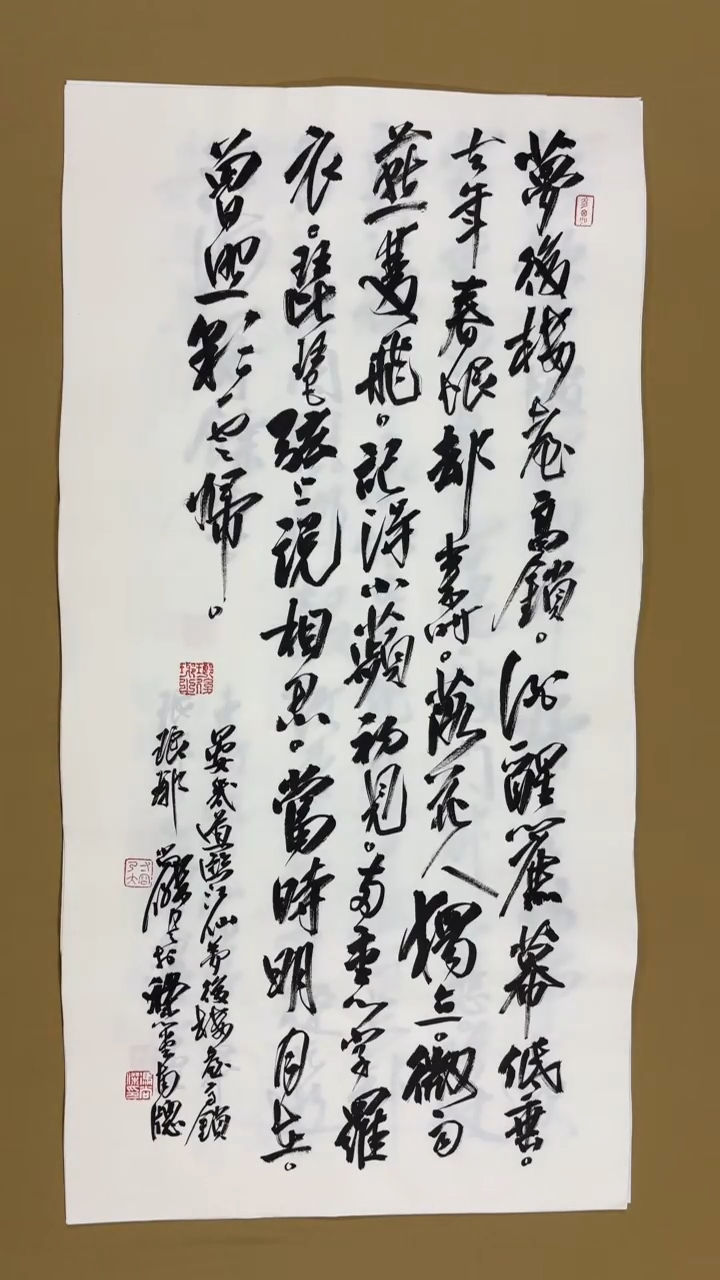 夢後樓臺高鎖。酒醒簾幕低垂。
去年春恨却來時。落花人獨立。微雨
燕雙飛。記得小蘋初見。兩重心字羅
衣。琵琶弦上説相思。當時明月在。
曾照彩雲歸。
晏幾道臨江仙夢後樓臺高鎖
琅邪
南窗